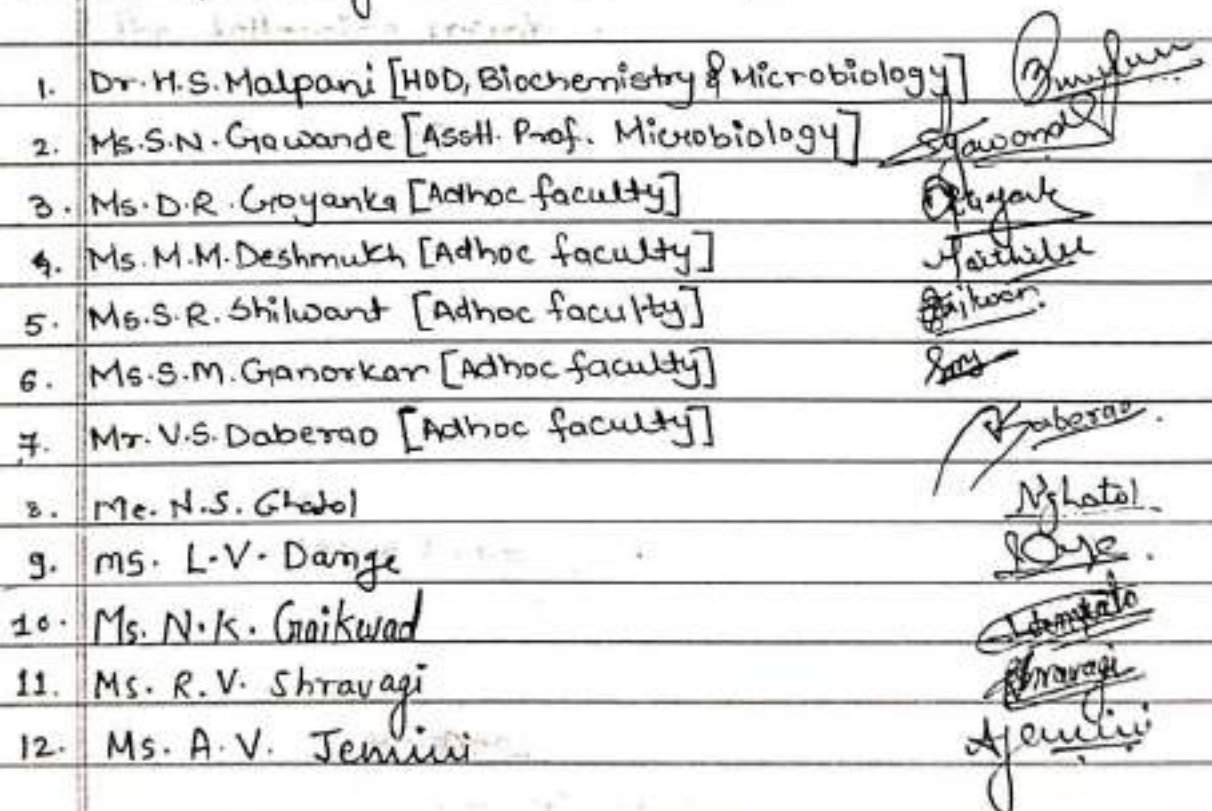 1. Dr. H.S. Malpani [HOD, Biochemistry & Microbiology]
2. Ms. S.N. Gawande [Asstt. Prof. Microbiology] SGawande
3. Ms. D.R. Goyanka [Adhoc faculty]
4. Ms. M.M. Deshmukh [Adhoc faculty] Maithilee
5. Ms. S.R. Shilwant [Adhoc faculty]
6. Ms. S.M. Ganorkar [Adhoc faculty]
7. Mr. V.S. Daberao [Adhoc faculty] Daberao
8. Me. N.S. Ghatol NGhatol
9. ms. L.V. Dange
10. Ms. N.K. Gaikwad
11. Ms. R.V. Shravagi Shravagi
12. Ms. A.V. Jemini AJemini